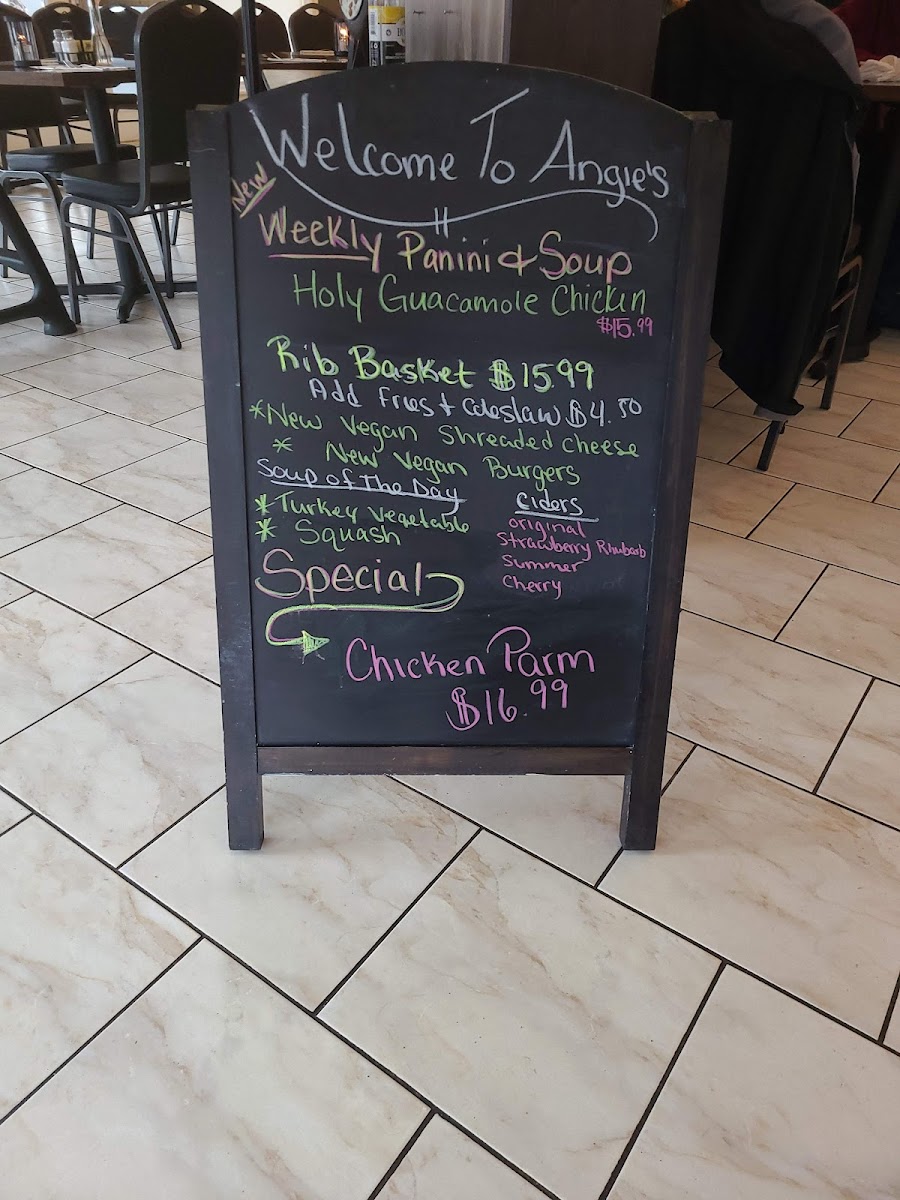 Welcome To Angie's
New
Weekly Panini & Soup
Holy Guacamole Chicken
$15.99
Rib Basket $15.99
Add Fries + Coleslaw $4.50
*New Vegan Shreaded Cheese
* New Vegan Burgers
Soup of The Day
* Turkey Vegetable
* Squash
Ciders
original
Strawberry Rhubarb
Summer
Cherry
Special
Chicken Parm
$16.99